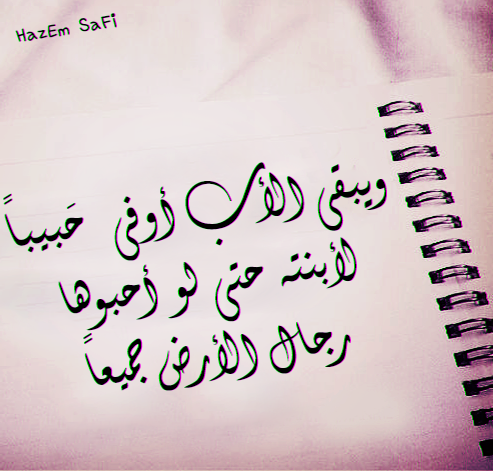 HazEm SaFi
ويبقى الأب أوفى حَبيباً
لأبنته حتى لو أحبوها
رجال الأرض جميعاً